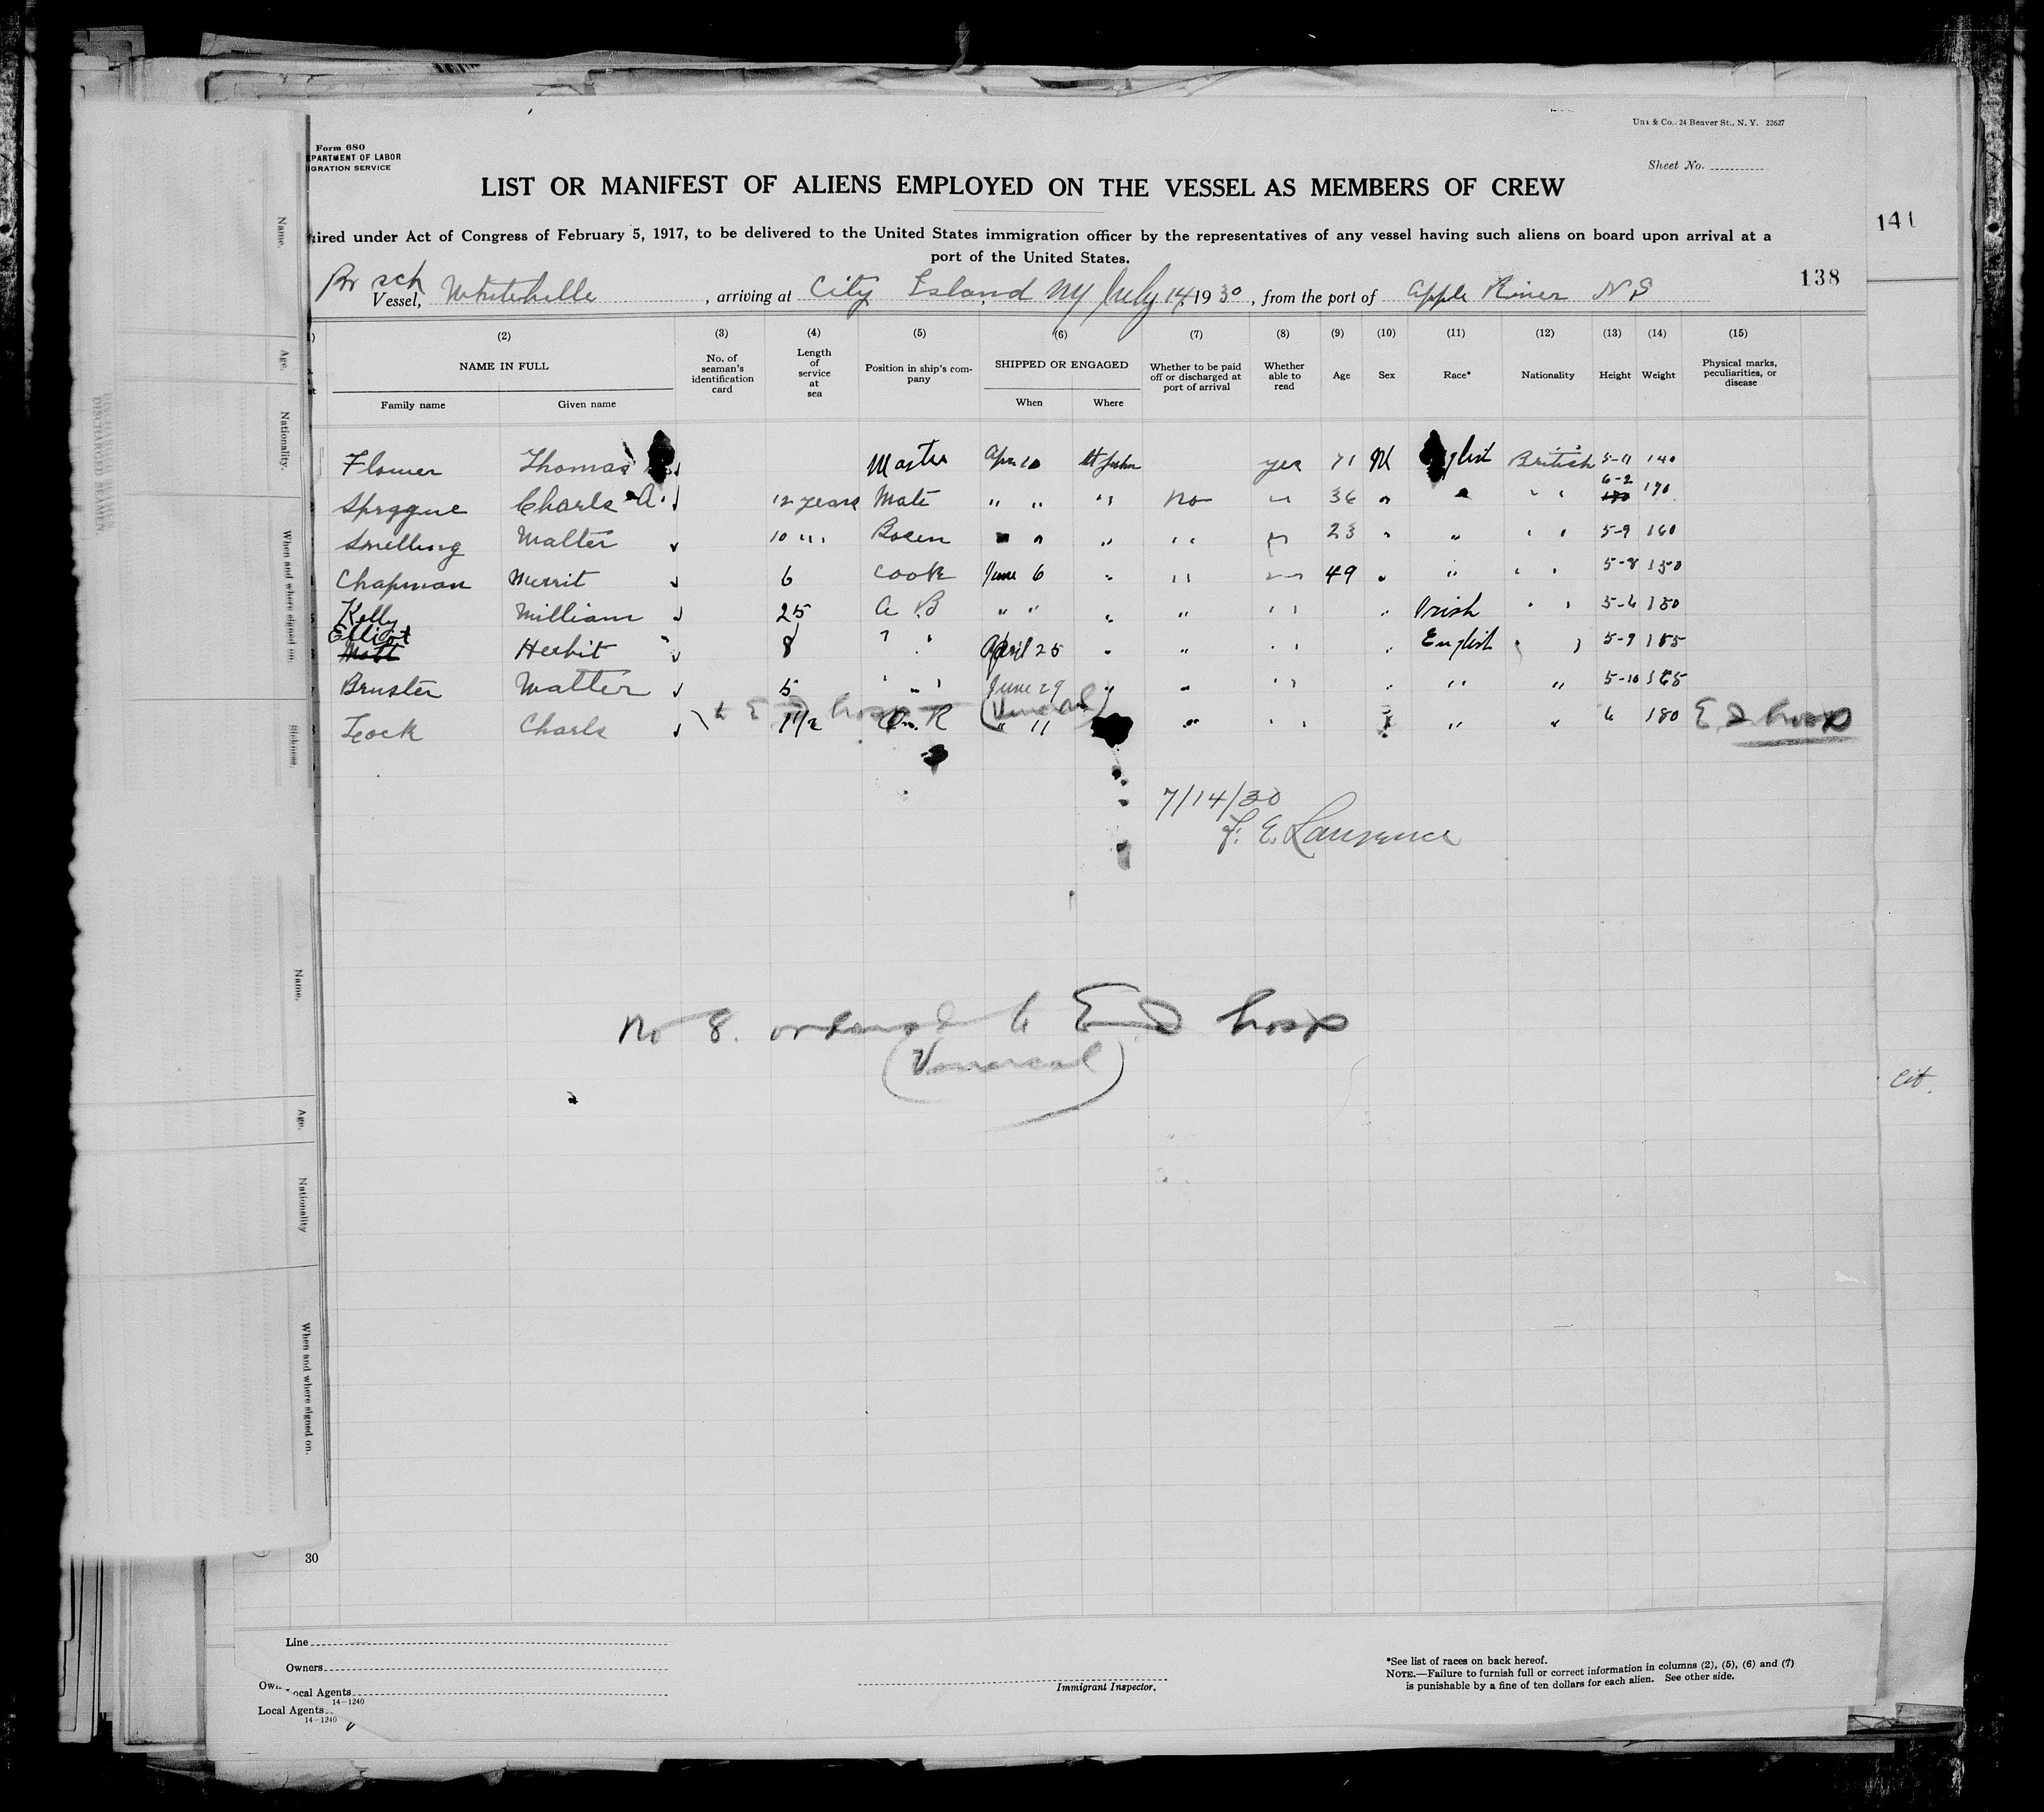 Uni & Co. 24 Beaver St., N. Y. 22627
Form 680
EPARTMENT OF LABOR
IGRATION SERVICE
Sheet No.
LIST OR MANIFEST OF ALIENS EMPLOYED ON THE VESSEL AS MEMBERS OF CREW
141
ired under Act of Congress of February 5, 1917, to be delivered to the United States immigration officer by the representatives of any vessel having such aliens on board upon arrival at a
port of the United States.
138
Br sch
Vessel, Whitebelle, arriving at City Island NY July 14, 1930, from the port of Apple River N S
(2) (3) (4) (5) (6) (7) (8) (9) (10) (11) (12) (13) (14) (15)
NAME IN FULL No. of seaman's identification card Length of service at sea Position in ship's company SHIPPED OR ENGAGED Whether to be paid off or discharged at port of arrival Whether able to read Age Sex Race* Nationality Height Weight Physical marks, peculiarities, or disease
Family name Given name When Where
Flower Thomas Master Apr 10 St John yes 71 M glish British 5-11 140
Spraggue Charls A. 12 years Mate " " " no " 36 " " " " 6-2 170
Snelling Walter 10 " Bosen " " " " " 23 " " " " 5-9 160
Chapman Merrit 6 Cook June 6 " " " 49 " " " " 5-8 150
Kelly William 25 A B " " " " " " Irish " " 5-6 150
Elliot
Mott Herbit 8 " " April 25 " " " " English " " 5-9 185
Bruster Walter 5 " " June 29 " " " " " " 5-10 165
to E I hosp (Venereal)
Charls 1 1/2 " 11 " " " " " 6 180 E I hosp
7/14/30
F. E. Lawrence
No 8. ordered to E I hosp
(Venereal)
cit.
Name.
Age.
Nationality.
When and where signed on.
Sickness.
DISCHARGED SEAMEN.
Name.
Age.
Nationality
When and where signed on.
30
Line
Owners
Own
ocal Agents
14-1240
Local Agents
14-1240
Immigrant Inspector.
*See list of races on back hereof.
NOTE.—Failure to furnish full or correct information in columns (2), (5), (6) and (7)
is punishable by a fine of ten dollars for each alien. See other side.